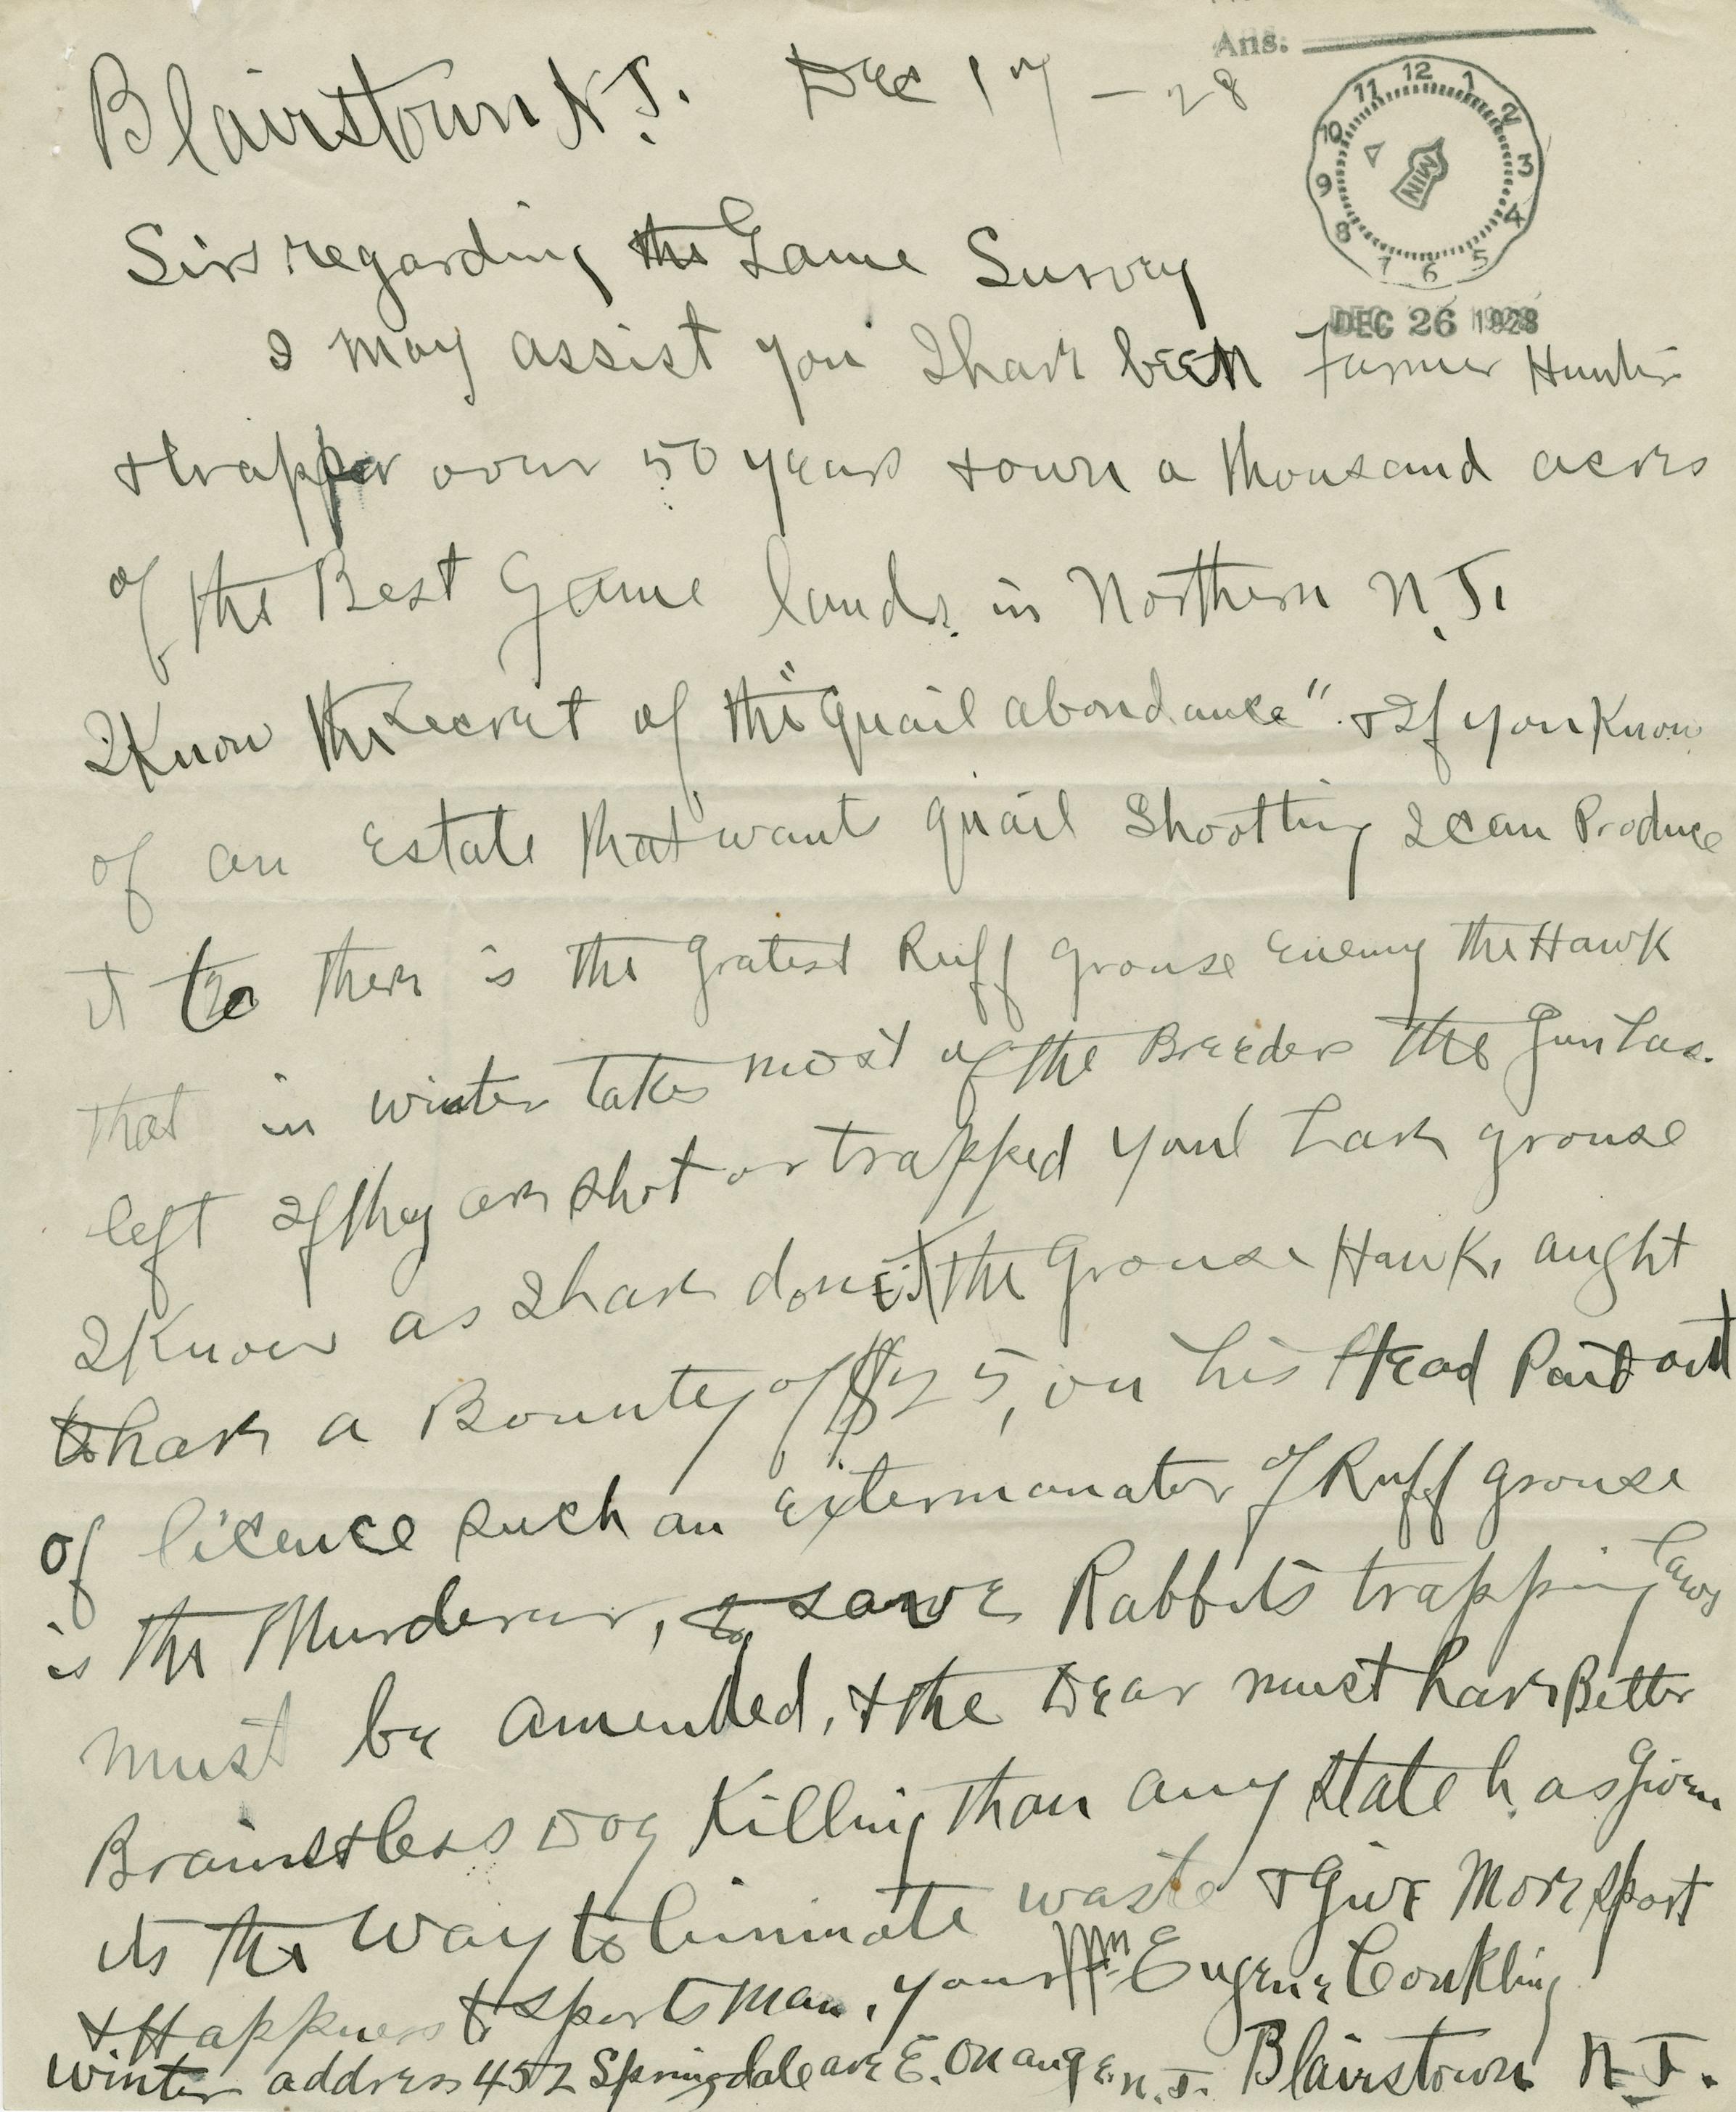 Ans.
12 1 2 3 4 5 6 7 8 9 10 11
MIN
DEC 26 1928
Blairstown N.J. Dec 17 - 28
Sirs regarding the Game Survey
I may assist you I have been Farmer Hunter
& trapper over 50 years & own a thousand acres
of the Best Game lands in Northern N.J.
I Know the secret of the "quail abondance". & If you Know
of an Estate that want quail Shootting I can Produce
it to there is the gratest Ruff grouse Enemy the Hawk
that in winter takes most of the Breeders the Gun has
left If they are shot or trapped youl have grouse
I Know as I have done it the Grouse Hawk, aught
to have a Bounty of $25, on his Head Paid out
of licence such an Extermanator of Ruff grouse
is the Murderer, to save Rabbits trapping laws
must be amended, & the Dear must have Better
Brainstless Dog Killing than any state has given
its the way to liminate waste & Give More sport
& Happness to sportsman, yours Wm Eugene Conkling
Winter address 452 Springdale ave E. Orange N.J. Blairstown N.J.